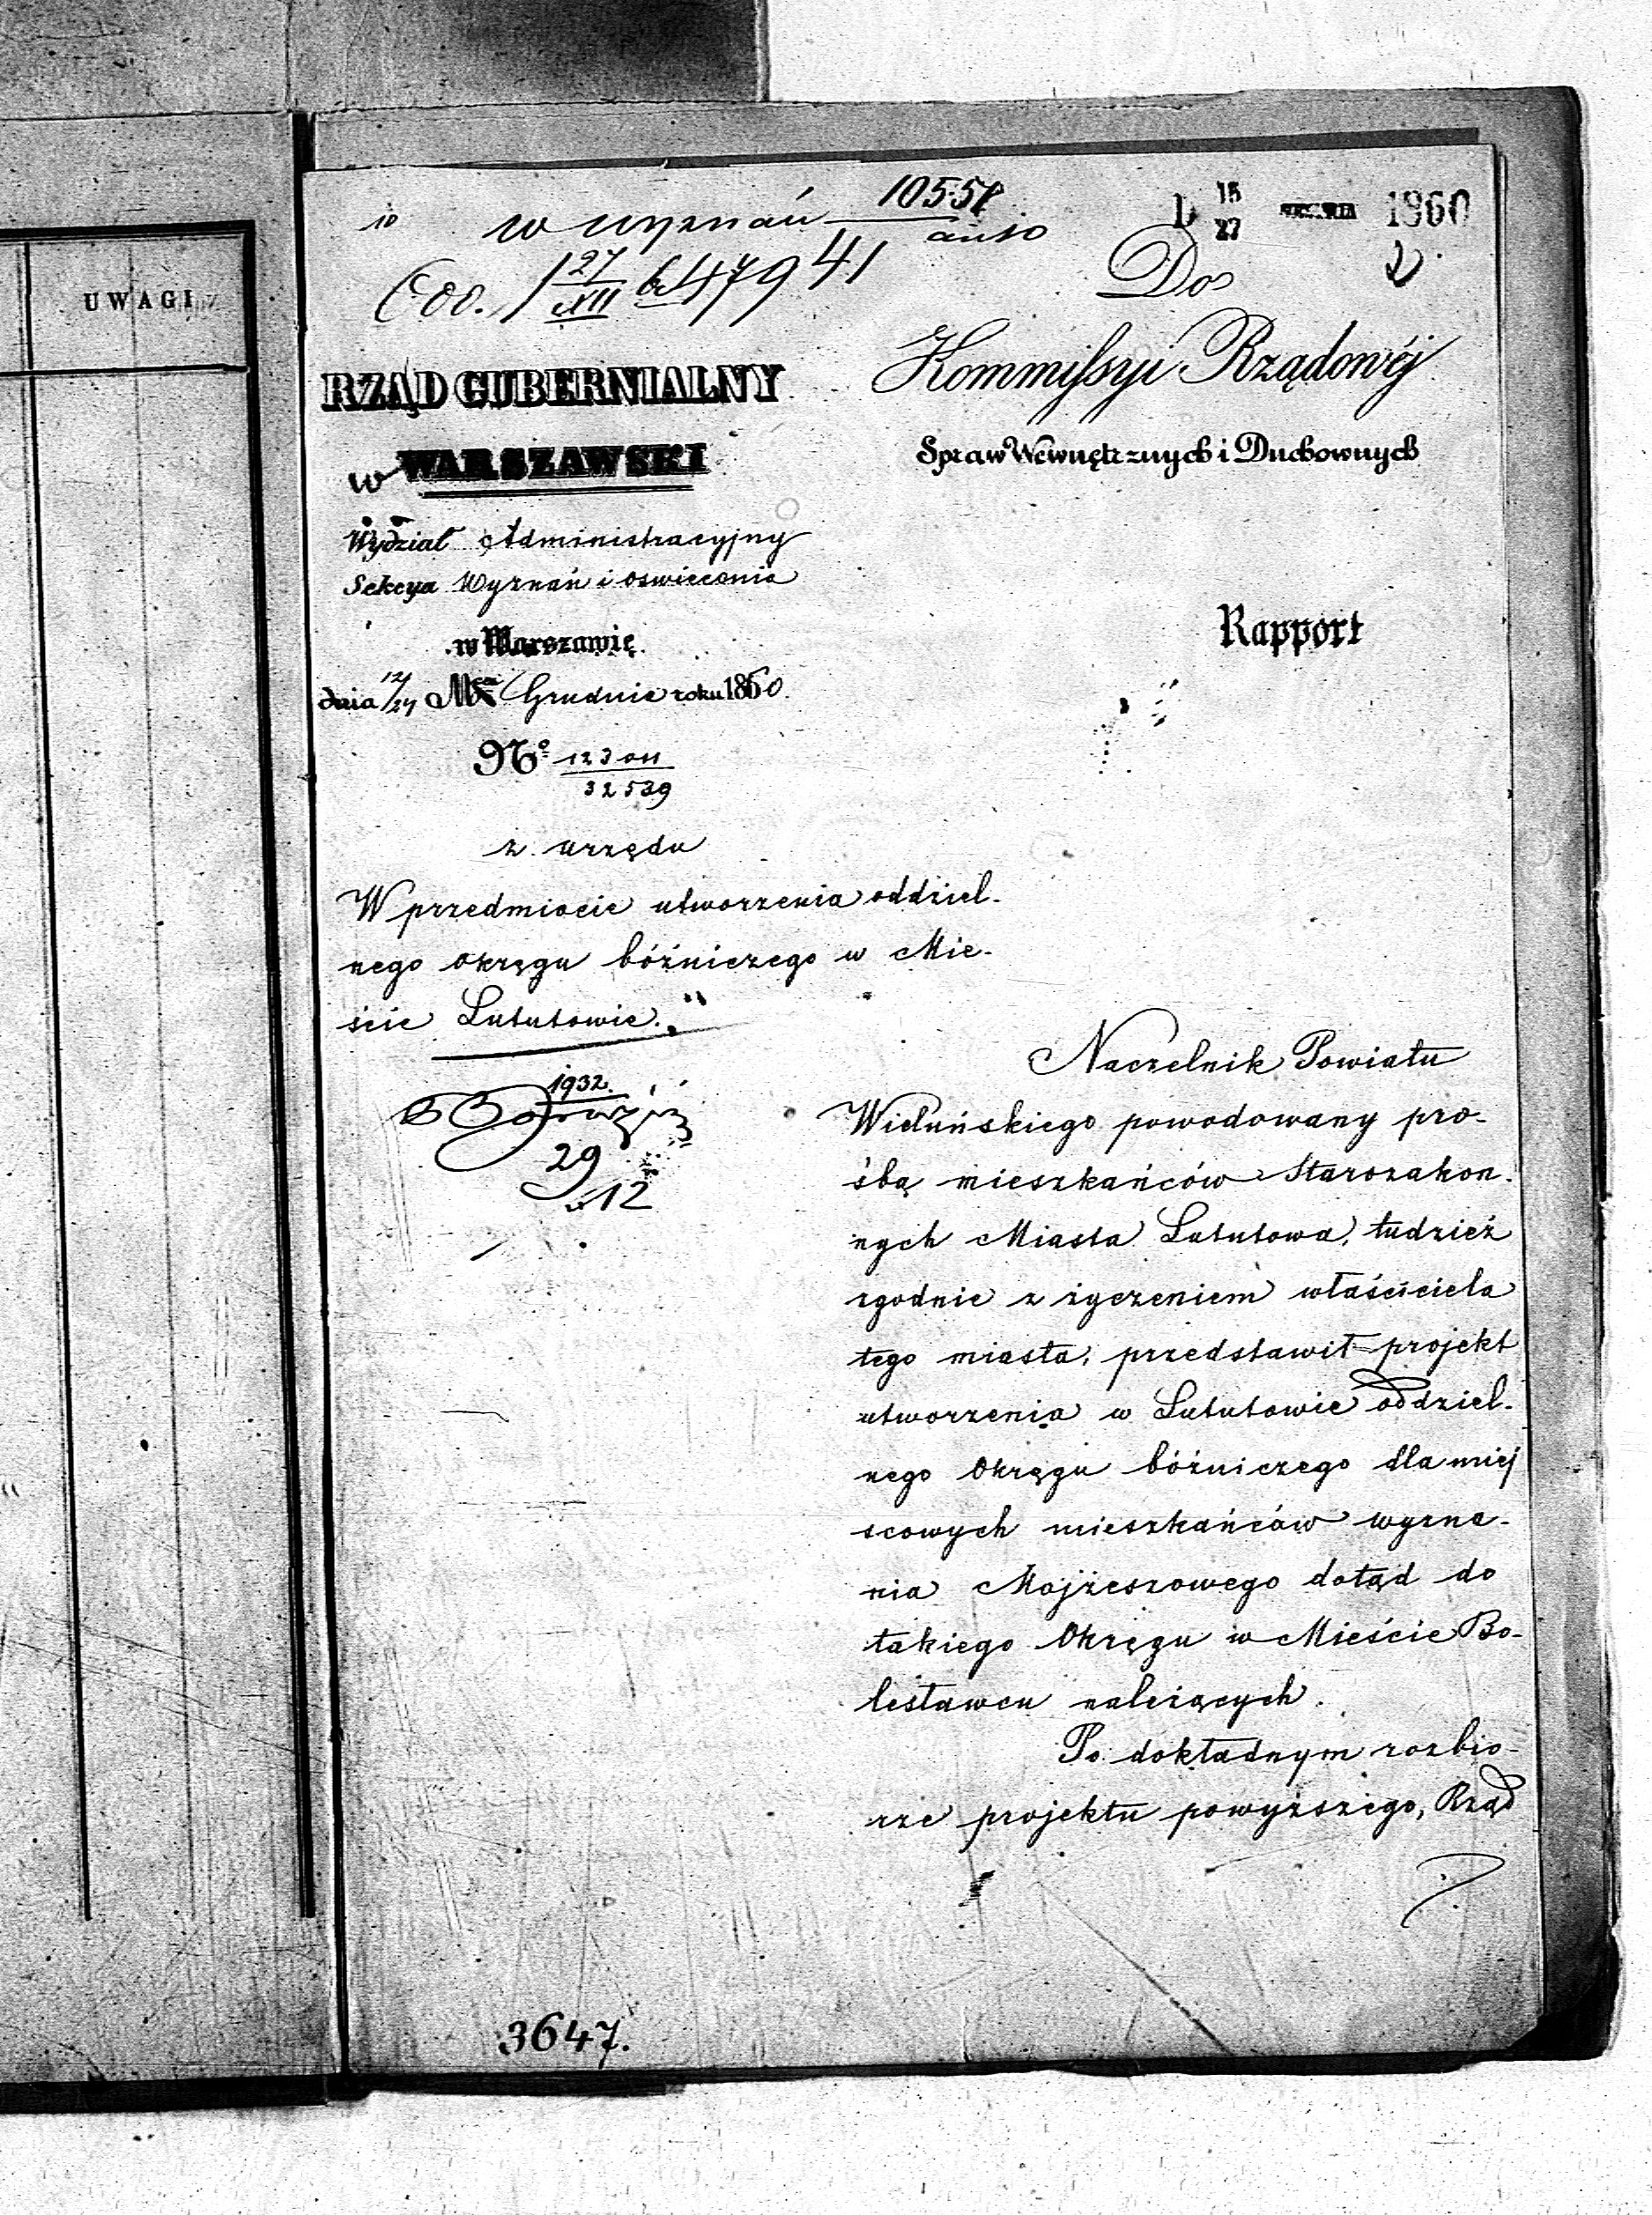 UWAGI
10
w wyznań 10557
27
XII
47941
D 15
27
1960
Do
Kommissyi Rządowéj
Spraw Wewnętrznych i Duchownych
RZĄD GUBERNIALNY
WARSZAWSKI
Wydział Administracyjny
Sekcya Wyznań i oswiecenia
w Warszawie
dnia 12/24 Grudnia roku 1860.
Rapport
No
32539
z urzędu
W przedmiocie utworzenia oddziel-
nego okręgu bóżniczego w Mie-
ście Lututowie.
1932.
29
12
Naczelnik Powiatu
Wieluńskiego powodowany pro-
śbą mieszkańców Starozakon-
nych Miasta Lututowa, tudzież
zgodnie z życzeniem właściciela
tego miasta, przedstawił projekt
utworzenia w Lututowie oddziel-
nego Okręgu bóżniczego dla miej
scowych mieszkańców wyzna-
nia Mojżeszowego dotąd do
takiego Okręgu w Mieście Bo-
lesławcu należących.
Po dokładnym rozbio-
rze projektu powyższego, Rząd
3647.